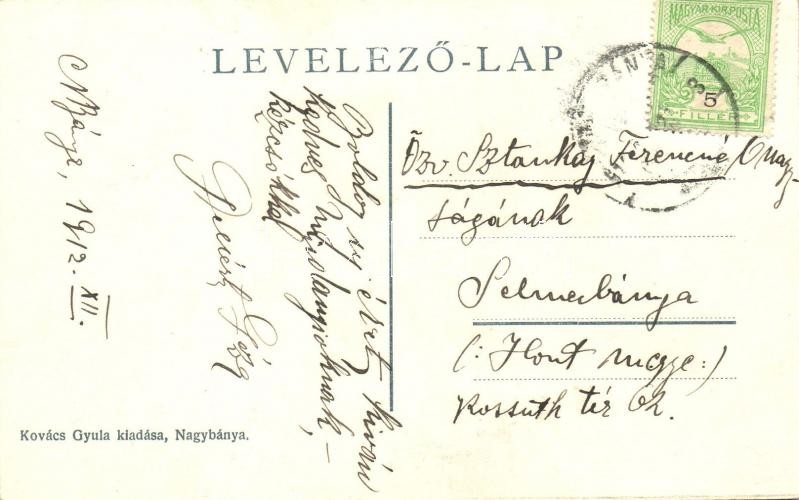 MAGYAR·KIR·POSTA
5
FILLÉR
LEVELEZŐ-LAP
Boldog uj évet kíván
kedves
kézcsókkal
Géza
N.Bánya, 1912. XII.
Özv. Sztankay Ferencné Ő Nagy-
ságának
Selmecbánya
(: Hont megye :)
Kossuth tér
Kovács Gyula kiadása, Nagybánya.